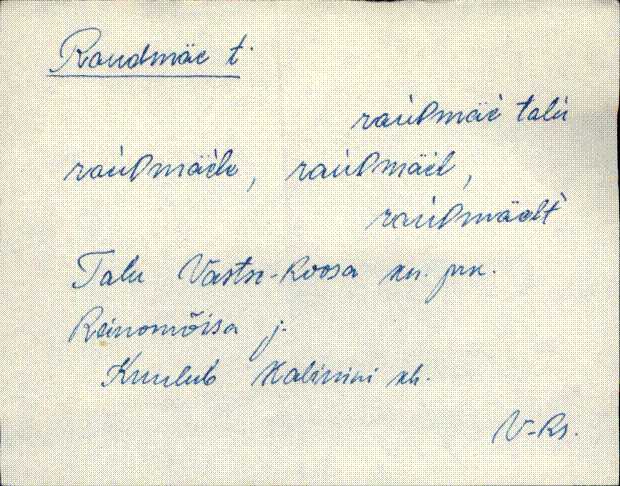 Raudmäe t.
raùᴅmäè talù
raùᴅmäele, raùᴅmäel,
raùᴅmäelt
Talu Vastse-Roosa kn.
Reinomõisa j.
Kuulub Kalinini kh.
V-Rs.